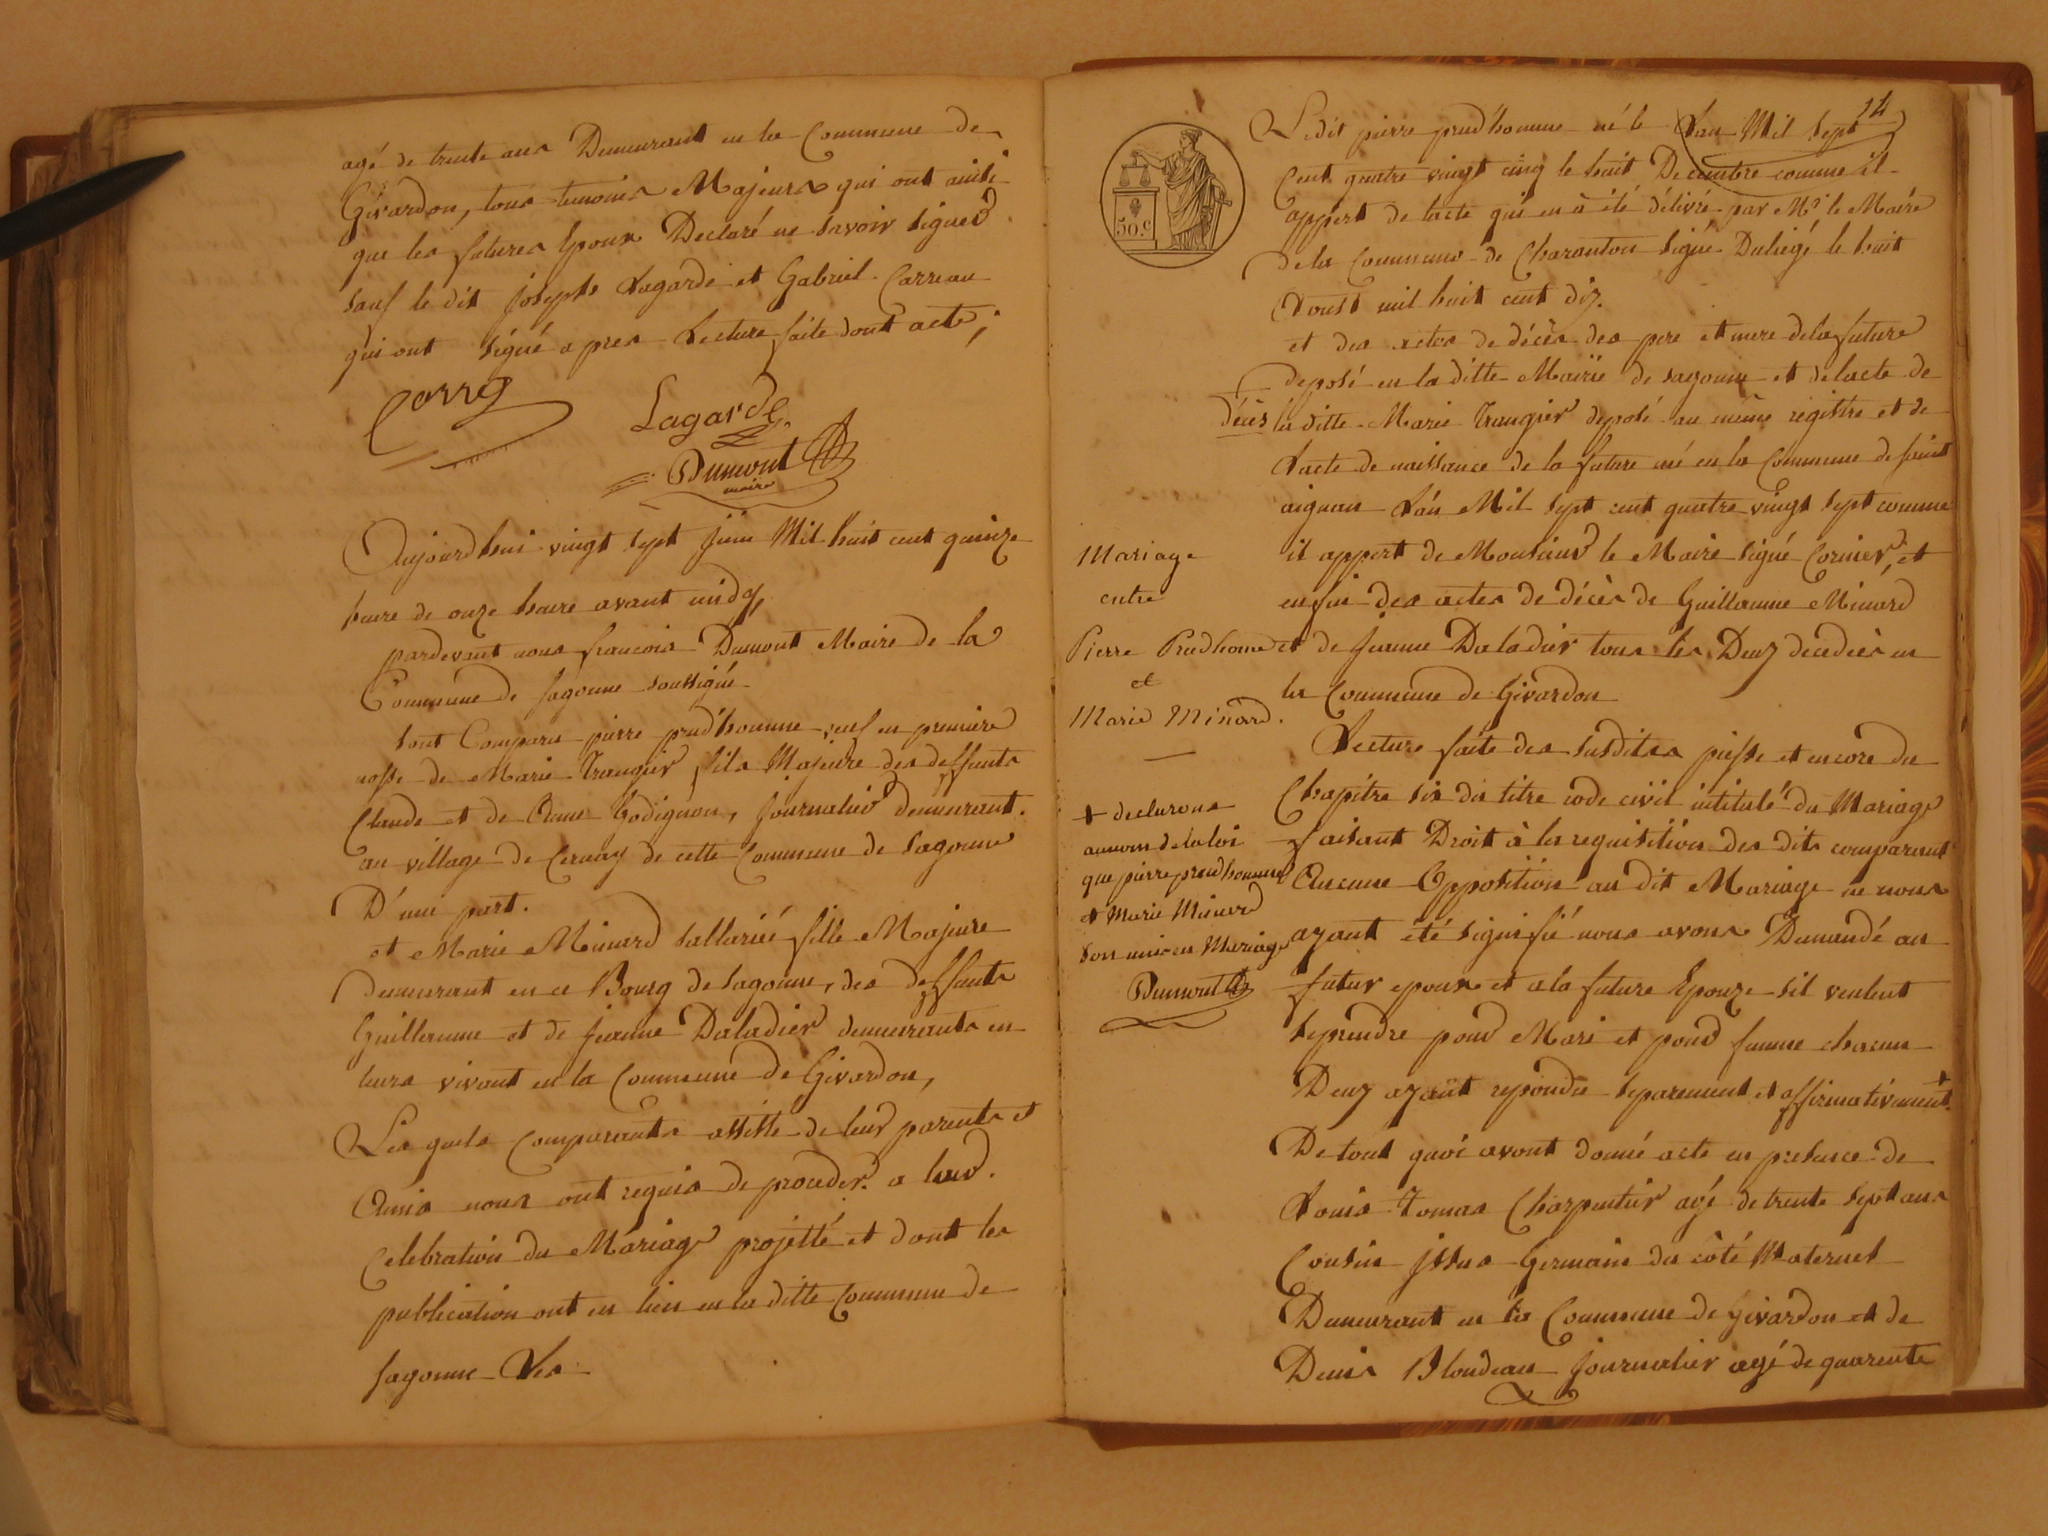 agé de trente ans Demeurant en la Commune de
Givardon, tous temoins Majeurs qui ont ainsi
que les futures Epoux Declaré ne Savoir Signer
sauf le dit Joseph Lagarde et Gabriel Carreau
qui ont Signé apres Lecture faite dont acte;
Lagarde
Dumont
maire
Aujourdhui vingt Sept Juin Mil huit cent quinze
heure de onze heure avant midy,
pardevant nous francois Dumont Maire de la
Commune de Sagonne soussigné
Sont Comparu pierre prud'homme veuf en premiere
nosse de Marie Traugier fils Majeure des deffunts
Claude et de Anne Godignon, Journalier demeurant
au village de Cernay de cette Commune de Sagonne
D'une part.
et Marie Minard fille Majeure
demeurant en ce Bourg de Sagonne, des deffunts
Guilleaume et de Jeanne Daladier demeurants en
leurs vivant en la Commune de Givardon,
Les quels comparants assisté de leur parents et
Amis nous ont requis de proceder a leur
Celebration du Mariage projetté et dont les
publication ont eu lieu en la ditte Commune de
Sagonne Les
14
50.c
Ledit pierre prud'homme né le L'an Mil Sept
Cent quatre vingt cinq le huit Decembre comme il
appert de lacte qui en à été délivré par Mr le Maire
de la Commune de Charanton Signé Duliegé le huit
Aoust mil huit cent dix.
et des actes de décès des pere et mere de la future
deposé en la ditte Mairie de Sagonne et de lacte de
décès la ditte Marie Traugier deposé au même registre et de
Lacte de naissance de la future né en la Commune de Saint
aignan L'an Mil Sept cent quatre vingt Sept comme
il appert de Monsieur le Maire Signé Cornier, et
enfin des actes de décès de Guillaume Minard
et de Jeanne Daladier tous les Deux decedées en
la Commune de Givardon
Lecture faite des Susdites piesse et encore du
Chapitre Six du titre code civil intitulé du Mariage
faisant Droit à la requisition des dits comparant
Aucune Opposition au dit Mariage ne nous
ayant été Signifié nous avons Demandé au
futur epoux et a la future Epouze Sil veulent
Seprendre pour Mari et pour femme chacun
Deux ayant repondu Separement et affirmativement +
De tout quoi avont donné acte en presence de
Louis Tomas Charpentier agé de trente Sept ans
Cousin issus Germain du côté Maternel
Demeurant en la Commune de Givardon et de
Denis Blondeau Journalier agé de quarente
Mariage
entre
Pierre Prudhome
et
Marie Minard.
+ declarons
aunom de la loi
que pierre prudhomme
et Marie Minard
Son unis en Mariage
Dumont